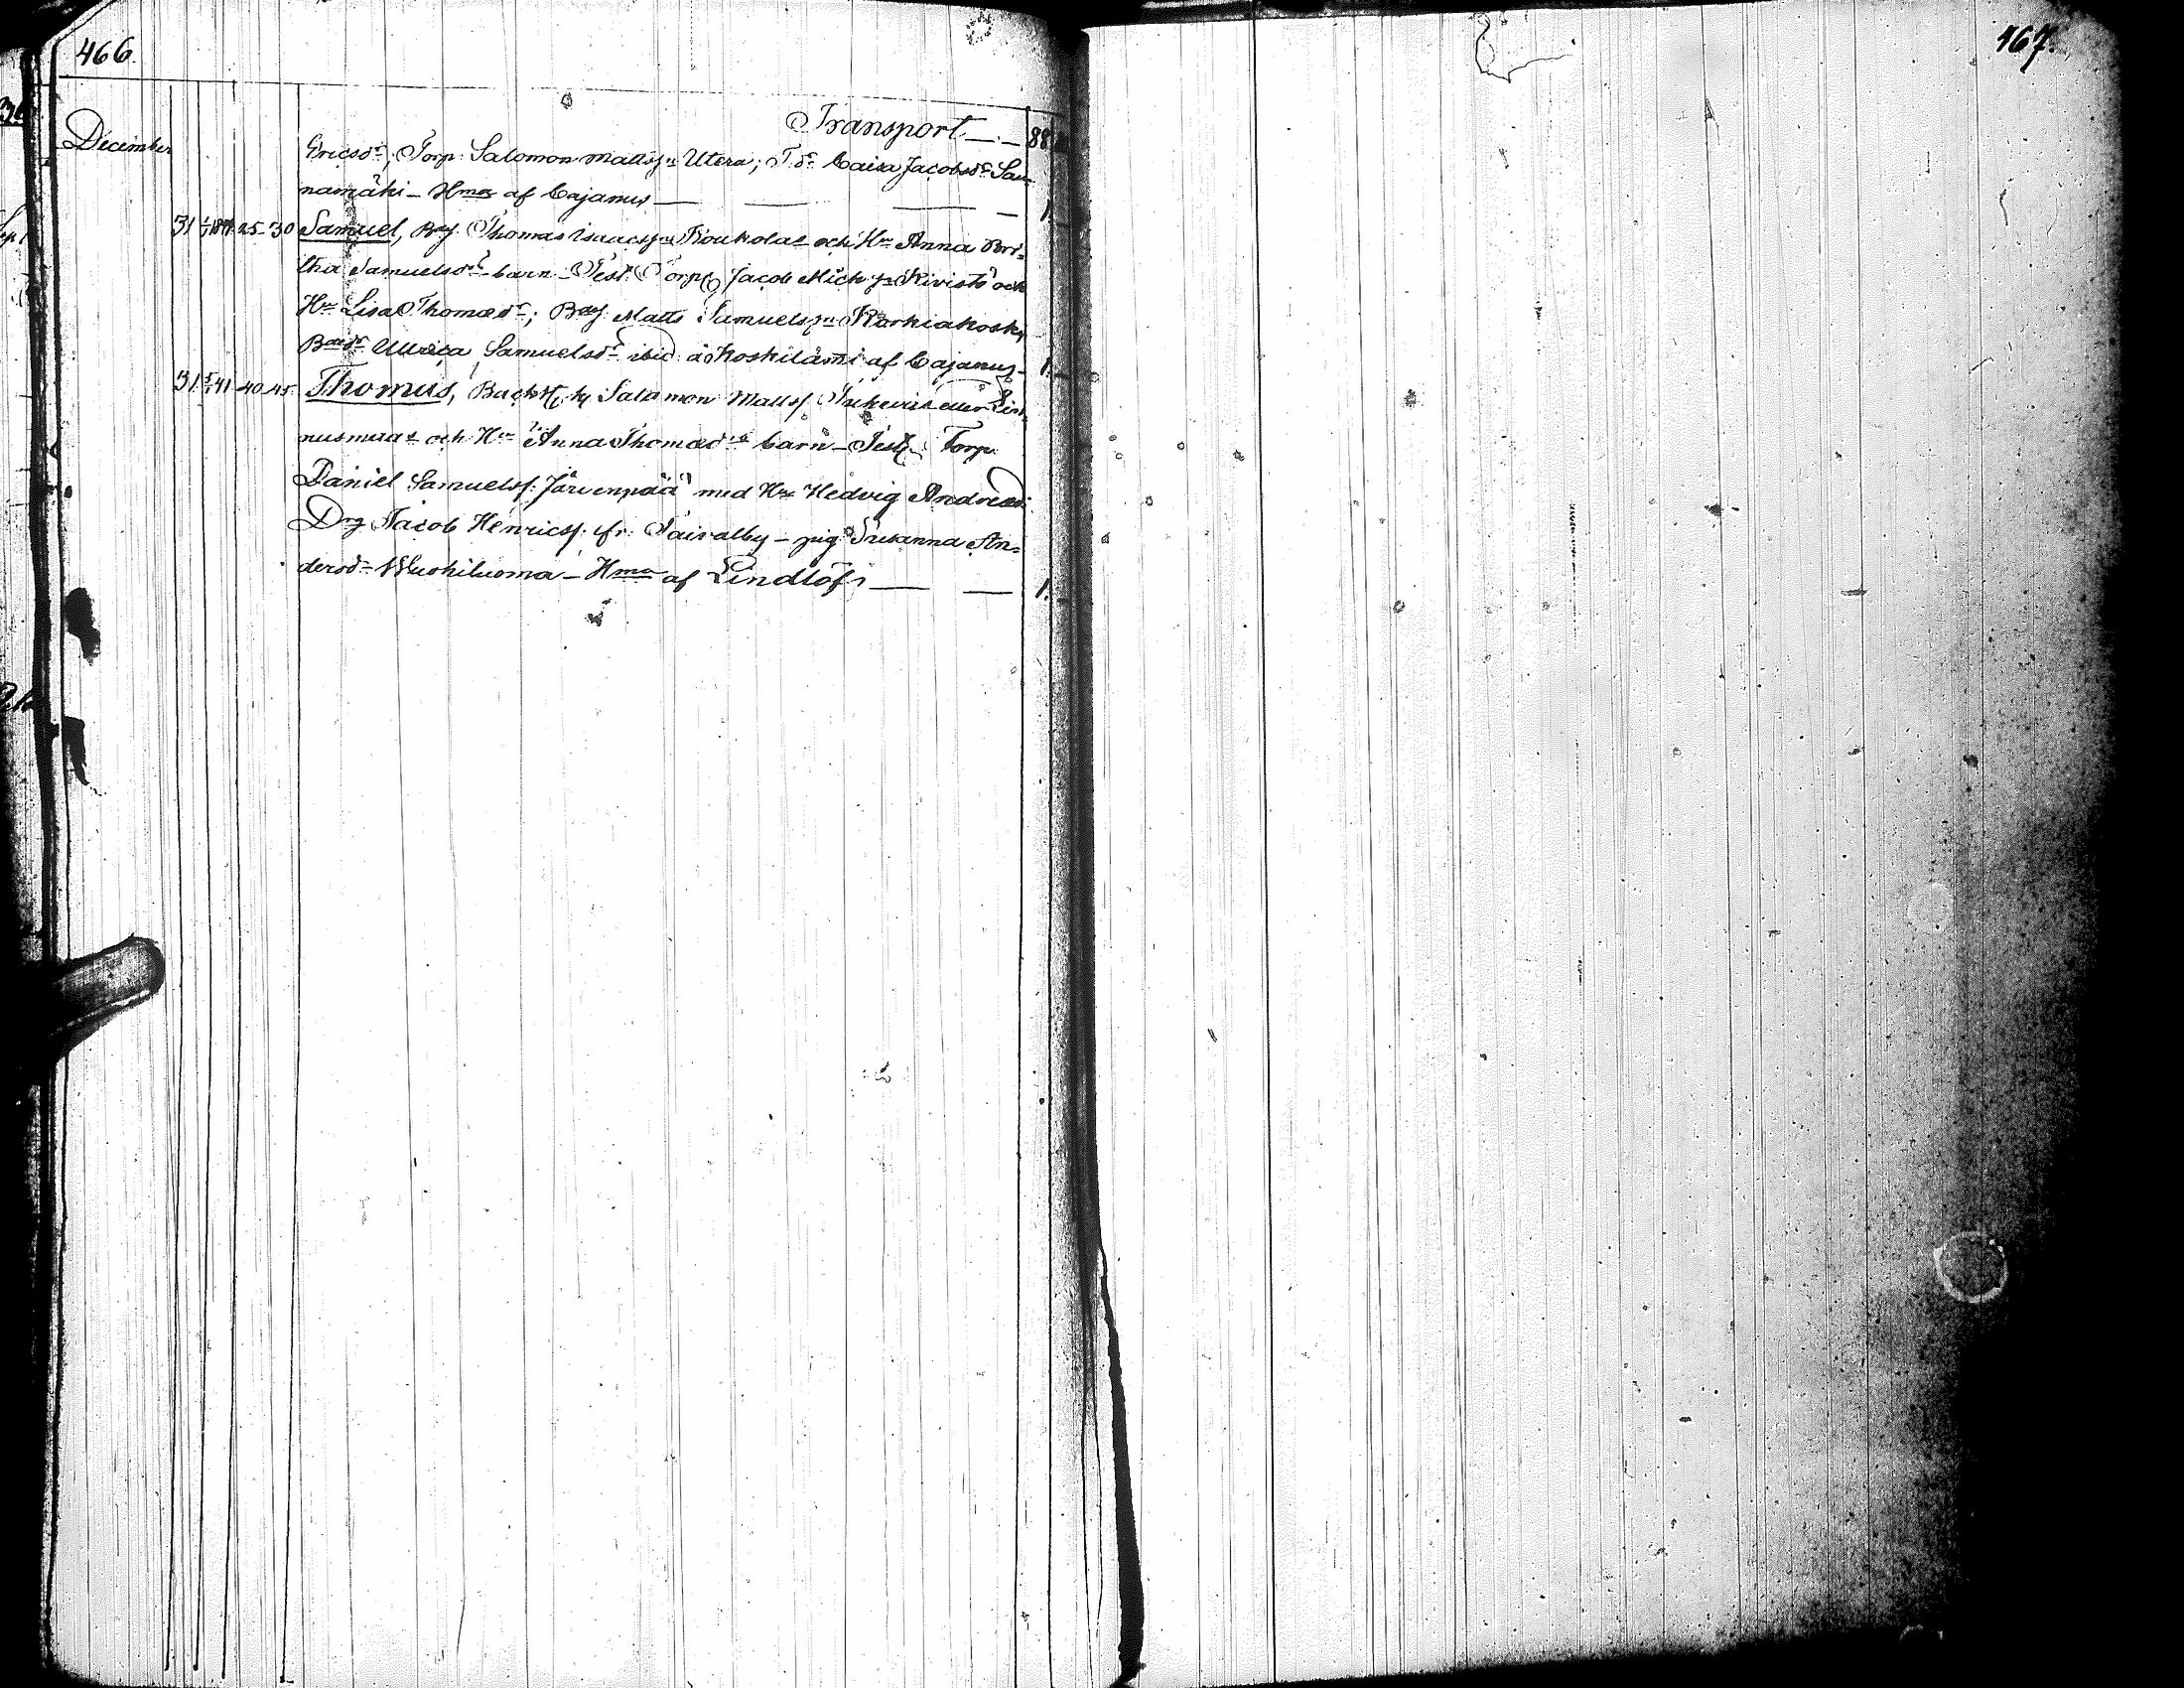 466.
467.
Transport — 88
December
Ericsdr; Torp. Salomon Mattss:n Utera; T.dr Caisa Jacobsdr Sau-
namäki – Hma af Cajanus — 1.
31 1/1 25–30 Samuel, Bdj. Thomas Isaacss:n Koukolas och Hu Anna Bri-
tha Samuelsdrs barn – Test. Torp. Jacob Mich:s:n Kivistö och
Hu Lisa Thomædr; Bdj Matts Samuelss:n Karhiakoski,
Bdr Ulrica Samuelsdr ibid. à Koskilami af Cajanus – 1.
31 41 40–45 Thomas, Salamon Mattss. eller Lin-
nusmaas och Hu Anna Thomædrs barn – Test. Torp.
Daniel Samuelss. Järvenpää med Hu Hedvig Andreædr
Drg Jacob Henricss. fr. – pig. Susanna An-
dersdr Wuohiluoma – Hma af Lindlöf — 1.